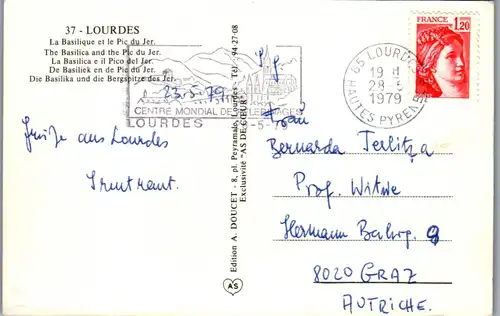 37 - LOURDES
La Basilique et le Pic du Jer.
The Basilica and the Pic du Jer.
La Basilica e il Pico del Jer.
De Basiliek en de Pic du Jer.
Die Basilika und die Bergspitze des Jer.
23.5.79
CENTRE MONDIAL DE PELERINAGES
LOURDES
65 LOURDES
19 H
28-5
1979
HAUTES PYRENEES
FRANCE
1,20
Grüße aus Lourdes
Edition A. DOUCET - 8, pl. Peyramale, Lourdes - Tél. : 94-27-08
Exclusivité "AS DE CŒUR"
AS
Frau
Bernarda Terlitza
Prof. Witwe
Hermann Bahrg. 9
8020 GRAZ
AUTRICHE.